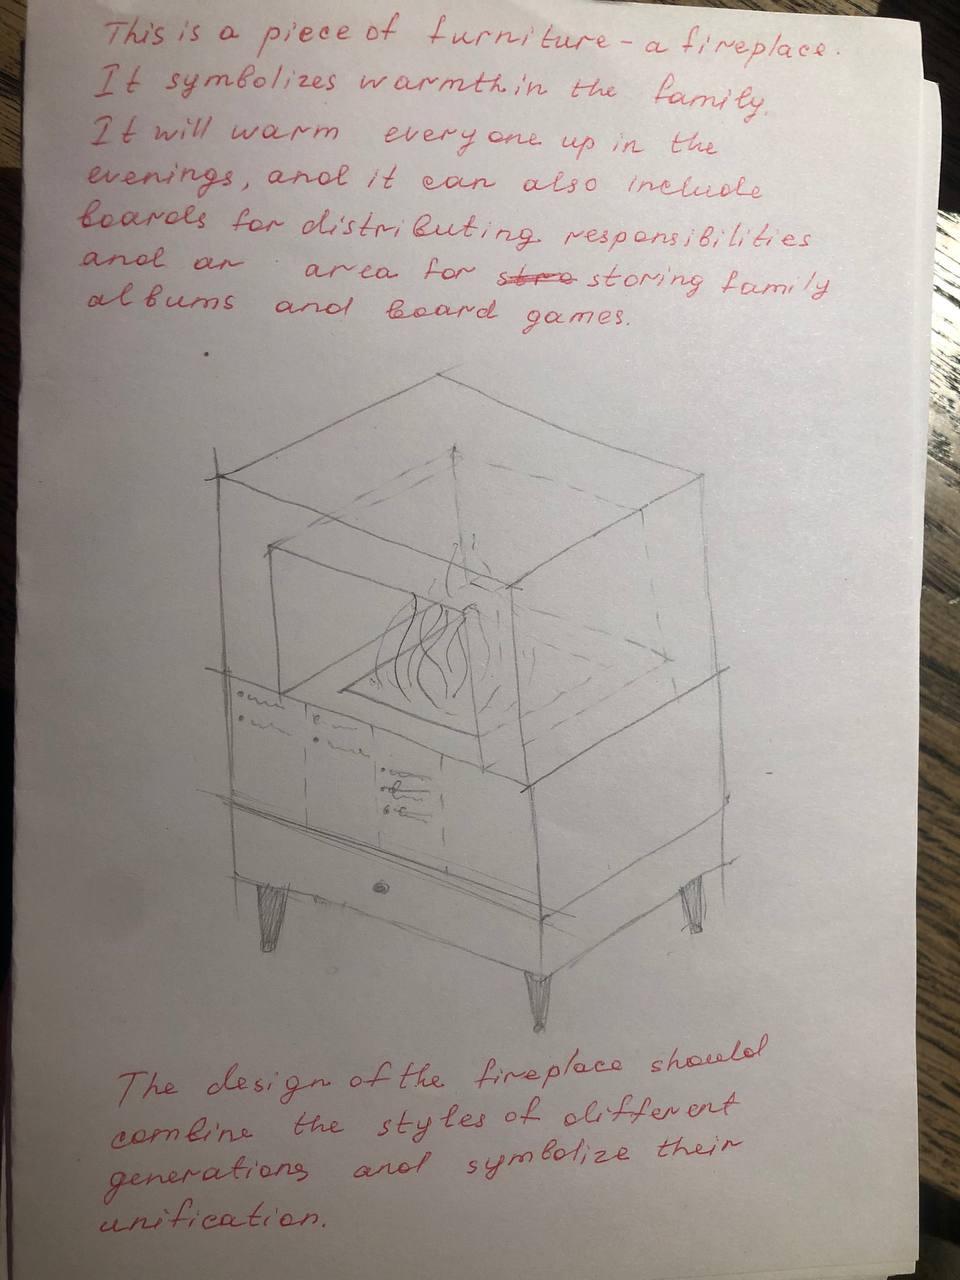 This is a piece of furniture - a fireplace.
It symbolizes warmth in the family.
It will warm everyone up in the
evenings, and it can also include
boards for distributing responsibilities
and an area for storing family
albums and board games.
The design of the fireplace should
combine the styles of different
generations and symbolize their
unification.